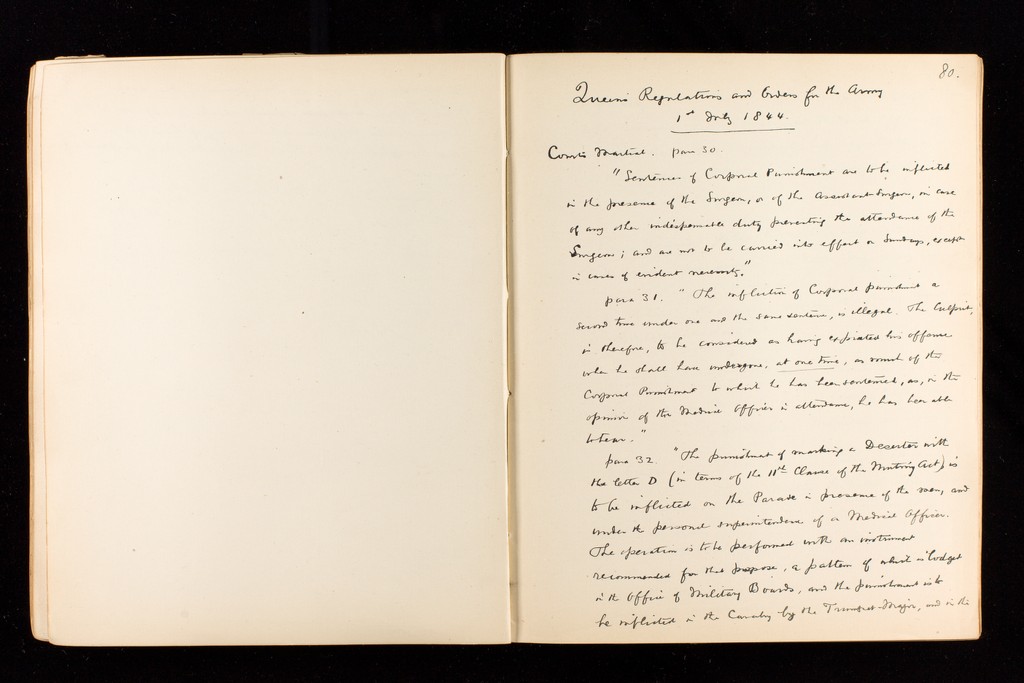 80.
Queen's Regulations and Orders for the Army
1st July 1844.
Courts Martial. para 30.
"Sentences of Corporal Punishment are to be inflicted
in the presence of the Surgeon, or of the Assistant-Surgeon, in case
of any other indispensable duty preventing the attendance of the
Surgeon; and are not to be carried into effect on Sundays, except
in cases of evident necessity."
para 31. "The infliction of Corporal Punishment a
second time under one and the same sentence, is illegal. The Culprit,
is therefore, to be considered as having expiated his offence
when he shall have undergone, at one time, as much of the
Corporal Punishment to which he has been sentenced, as, in the
opinion of the Medical Officer in attendance, he has been able
to bear."
para 32. "The punishment of marking a Deserter with
the letter D (in terms of the 11th Clause of the Mutiny Act) is
to be inflicted on the Parade in presence of the men, and
under the personal superintendence of a Medical Officer.
The operation is to be performed with an instrument
recommended for that purpose, a pattern of which is lodged
in the Office of Military Boards, and the punishment is to
be inflicted in the Cavalry by the Trumpet-Major, and in the